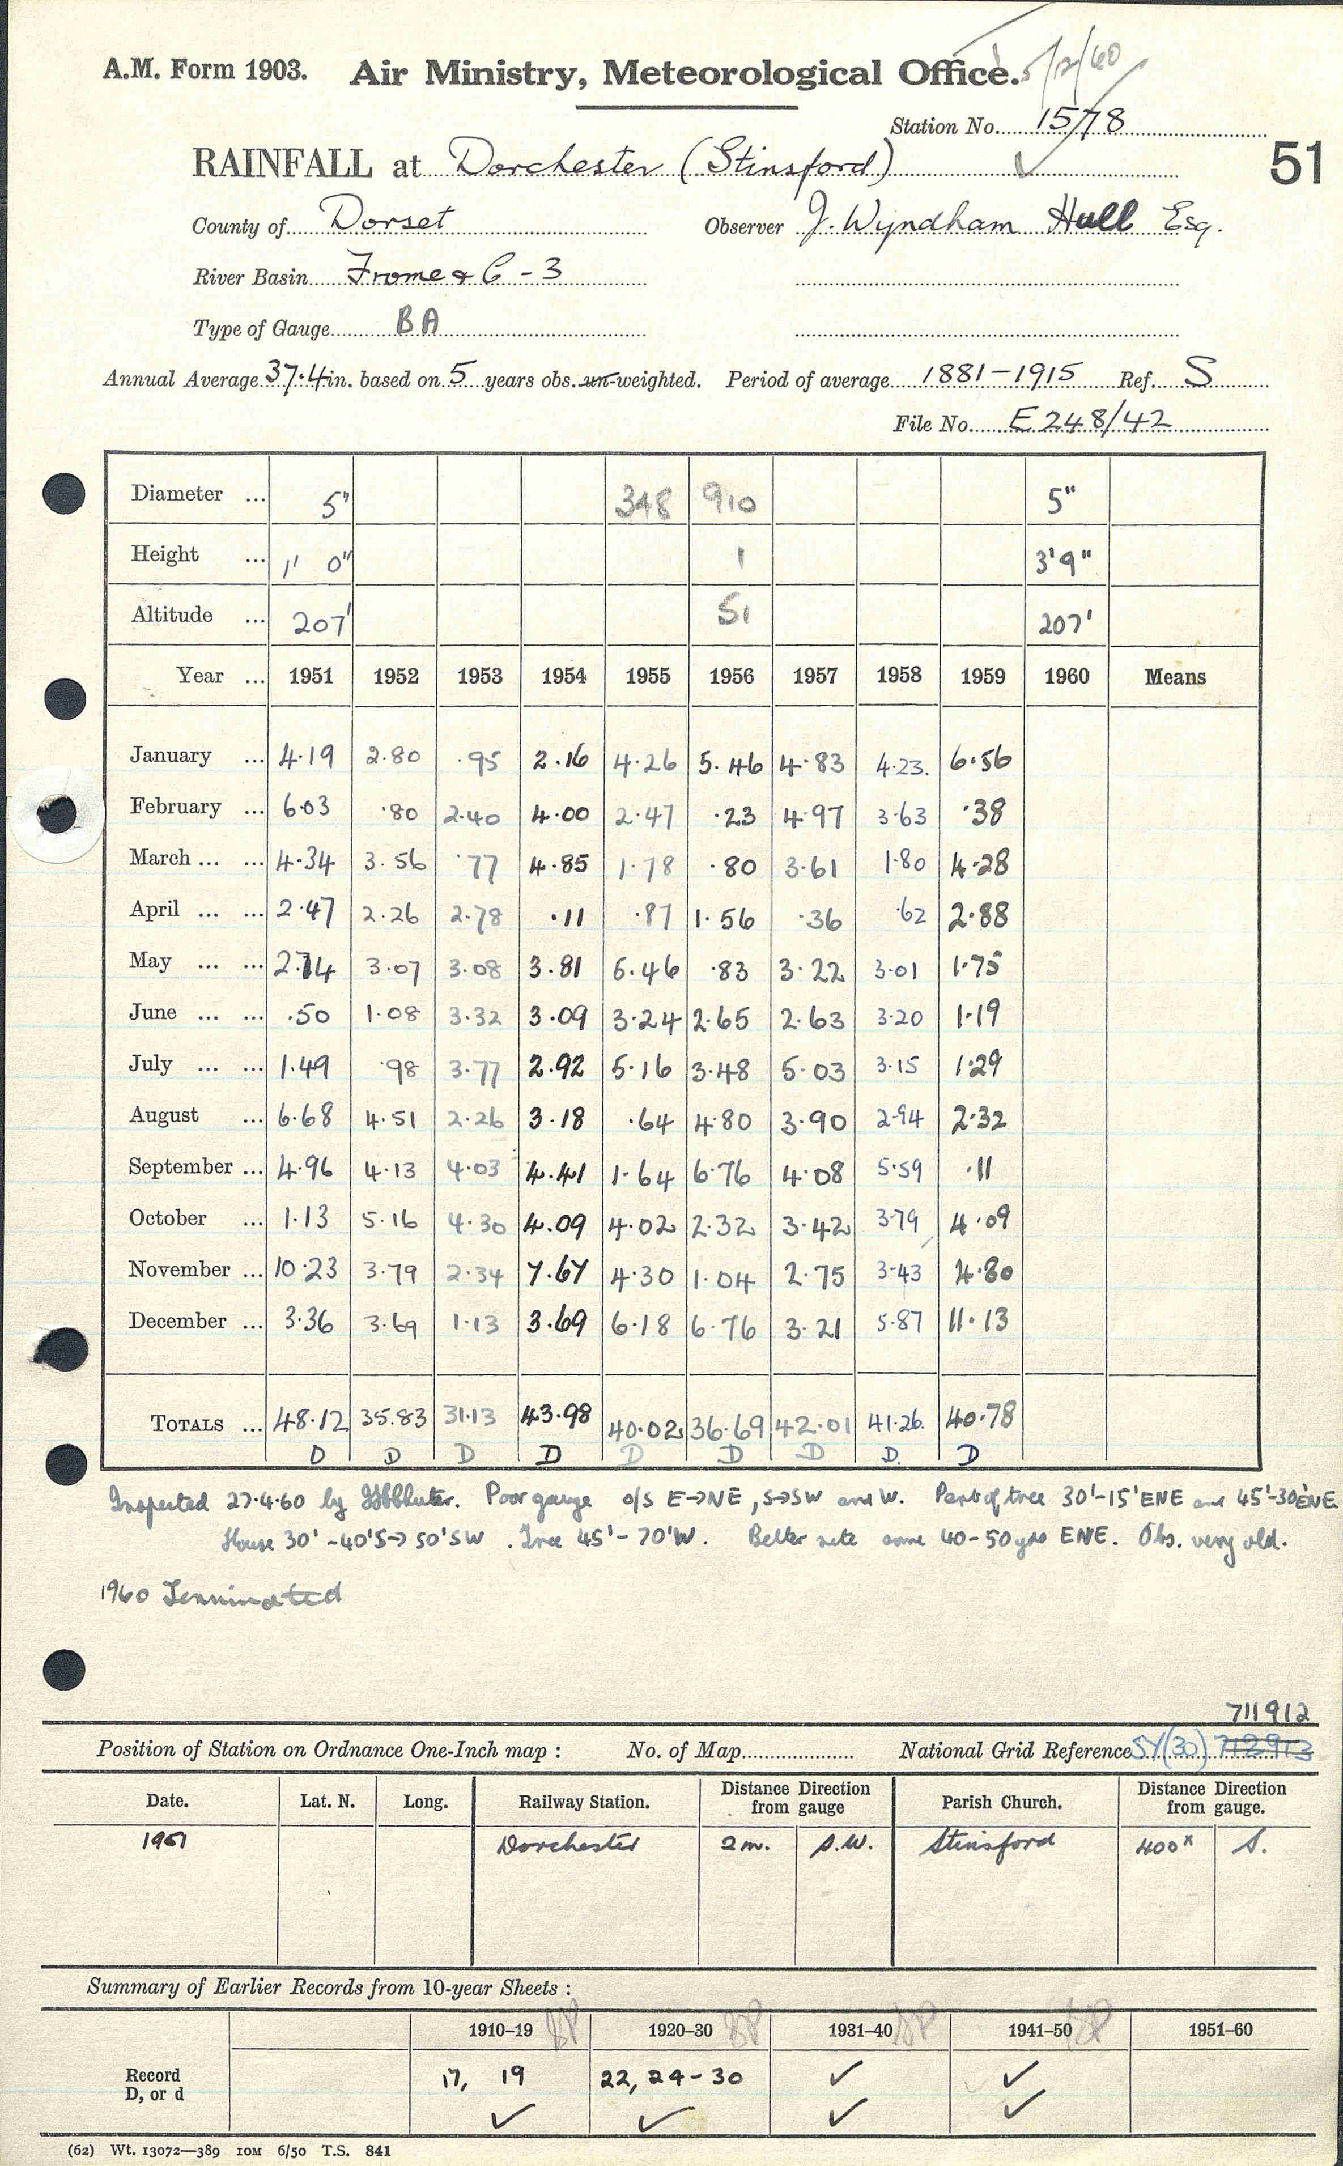 5/2/60
A.M. Form 1903. Air Ministry, Meteorological Office.
Station No. 1578
51
RAINFALL at Dorchester (Stinsford)
County of Dorset Observer J. Wyndham Hull Esq.
River Basin Frome & C - 3
Type of Gauge BA
Annual Average 37.4 in. based on 5 years obs. un-weighted. Period of average 1881-1915 Ref. S
File No. E 248/42
Diameter ... 5" 348 910 5"
Height ... 1' 0" 1 3'9"
Altitude ... 207' 51 207'
Year ... 1951 1952 1953 1954 1955 1956 1957 1958 1959 1960 Means
January ... 4.19 2.80 .95 2.16 4.26 5.46 4.83 4.23. 6.56
February ... 6.03 .80 2.40 4.00 2.47 .23 4.97 3.63 .38
March ... ... 4.34 3.56 .77 4.85 1.78 .80 3.61 1.80 4.28
April ... ... 2.47 2.26 2.78 .11 .87 1.56 .36 .62 2.88
May ... ... 2.74 3.07 3.08 3.81 5.46 .83 3.22 3.01 1.75
June ... ... .50 1.08 3.32 3.09 3.24 2.65 2.63 3.20 1.19
July ... ... 1.49 .98 3.77 2.92 5.16 3.48 5.03 3.15 1.29
August ... 6.68 4.51 2.26 3.18 .64 4.80 3.90 2.94 2.32
September ... 4.96 4.13 4.03 4.41 1.64 6.76 4.08 5.59 .11
October ... 1.13 5.16 4.30 4.09 4.02 2.32 3.42 3.79 4.09
November ... 10.23 3.79 2.34 7.67 4.30 1.04 2.75 3.43 4.80
December ... 3.36 3.69 1.13 3.69 6.18 6.76 3.21 5.87 11.13
TOTALS ... 48.12 35.83 31.13 43.98 40.02 36.69 42.01 41.26. 40.78
D D D D D D D D. D
Inspected 27.4.60 by Poor gauge o/s E→NE, S→SW and W. Part of tree 30'-15' ENE and 45'-30' ENE
House 30' -40'S→ 50'SW. Tree 45'- 70'W. Better site some 40-50 yds ENE. Obs. very old.
1960 Terminated
711912
Position of Station on Ordnance One-Inch map : No. of Map National Grid Reference SY(30) 712913
Date. Lat. N. Long. Railway Station. Distance Direction from gauge Parish Church. Distance Direction from gauge.
1951 Dorchester 2m. S.W. Stinsford 400x S.
Summary of Earlier Records from 10-year Sheets :
1910-19 1920-30 1931-40 1941-50 1951-60
Record D, or d 17, 19 22, 24-30 ✓ ✓
✓ ✓ ✓ ✓
(62) Wt. 13072—389 IOM 6/50 T.S. 841